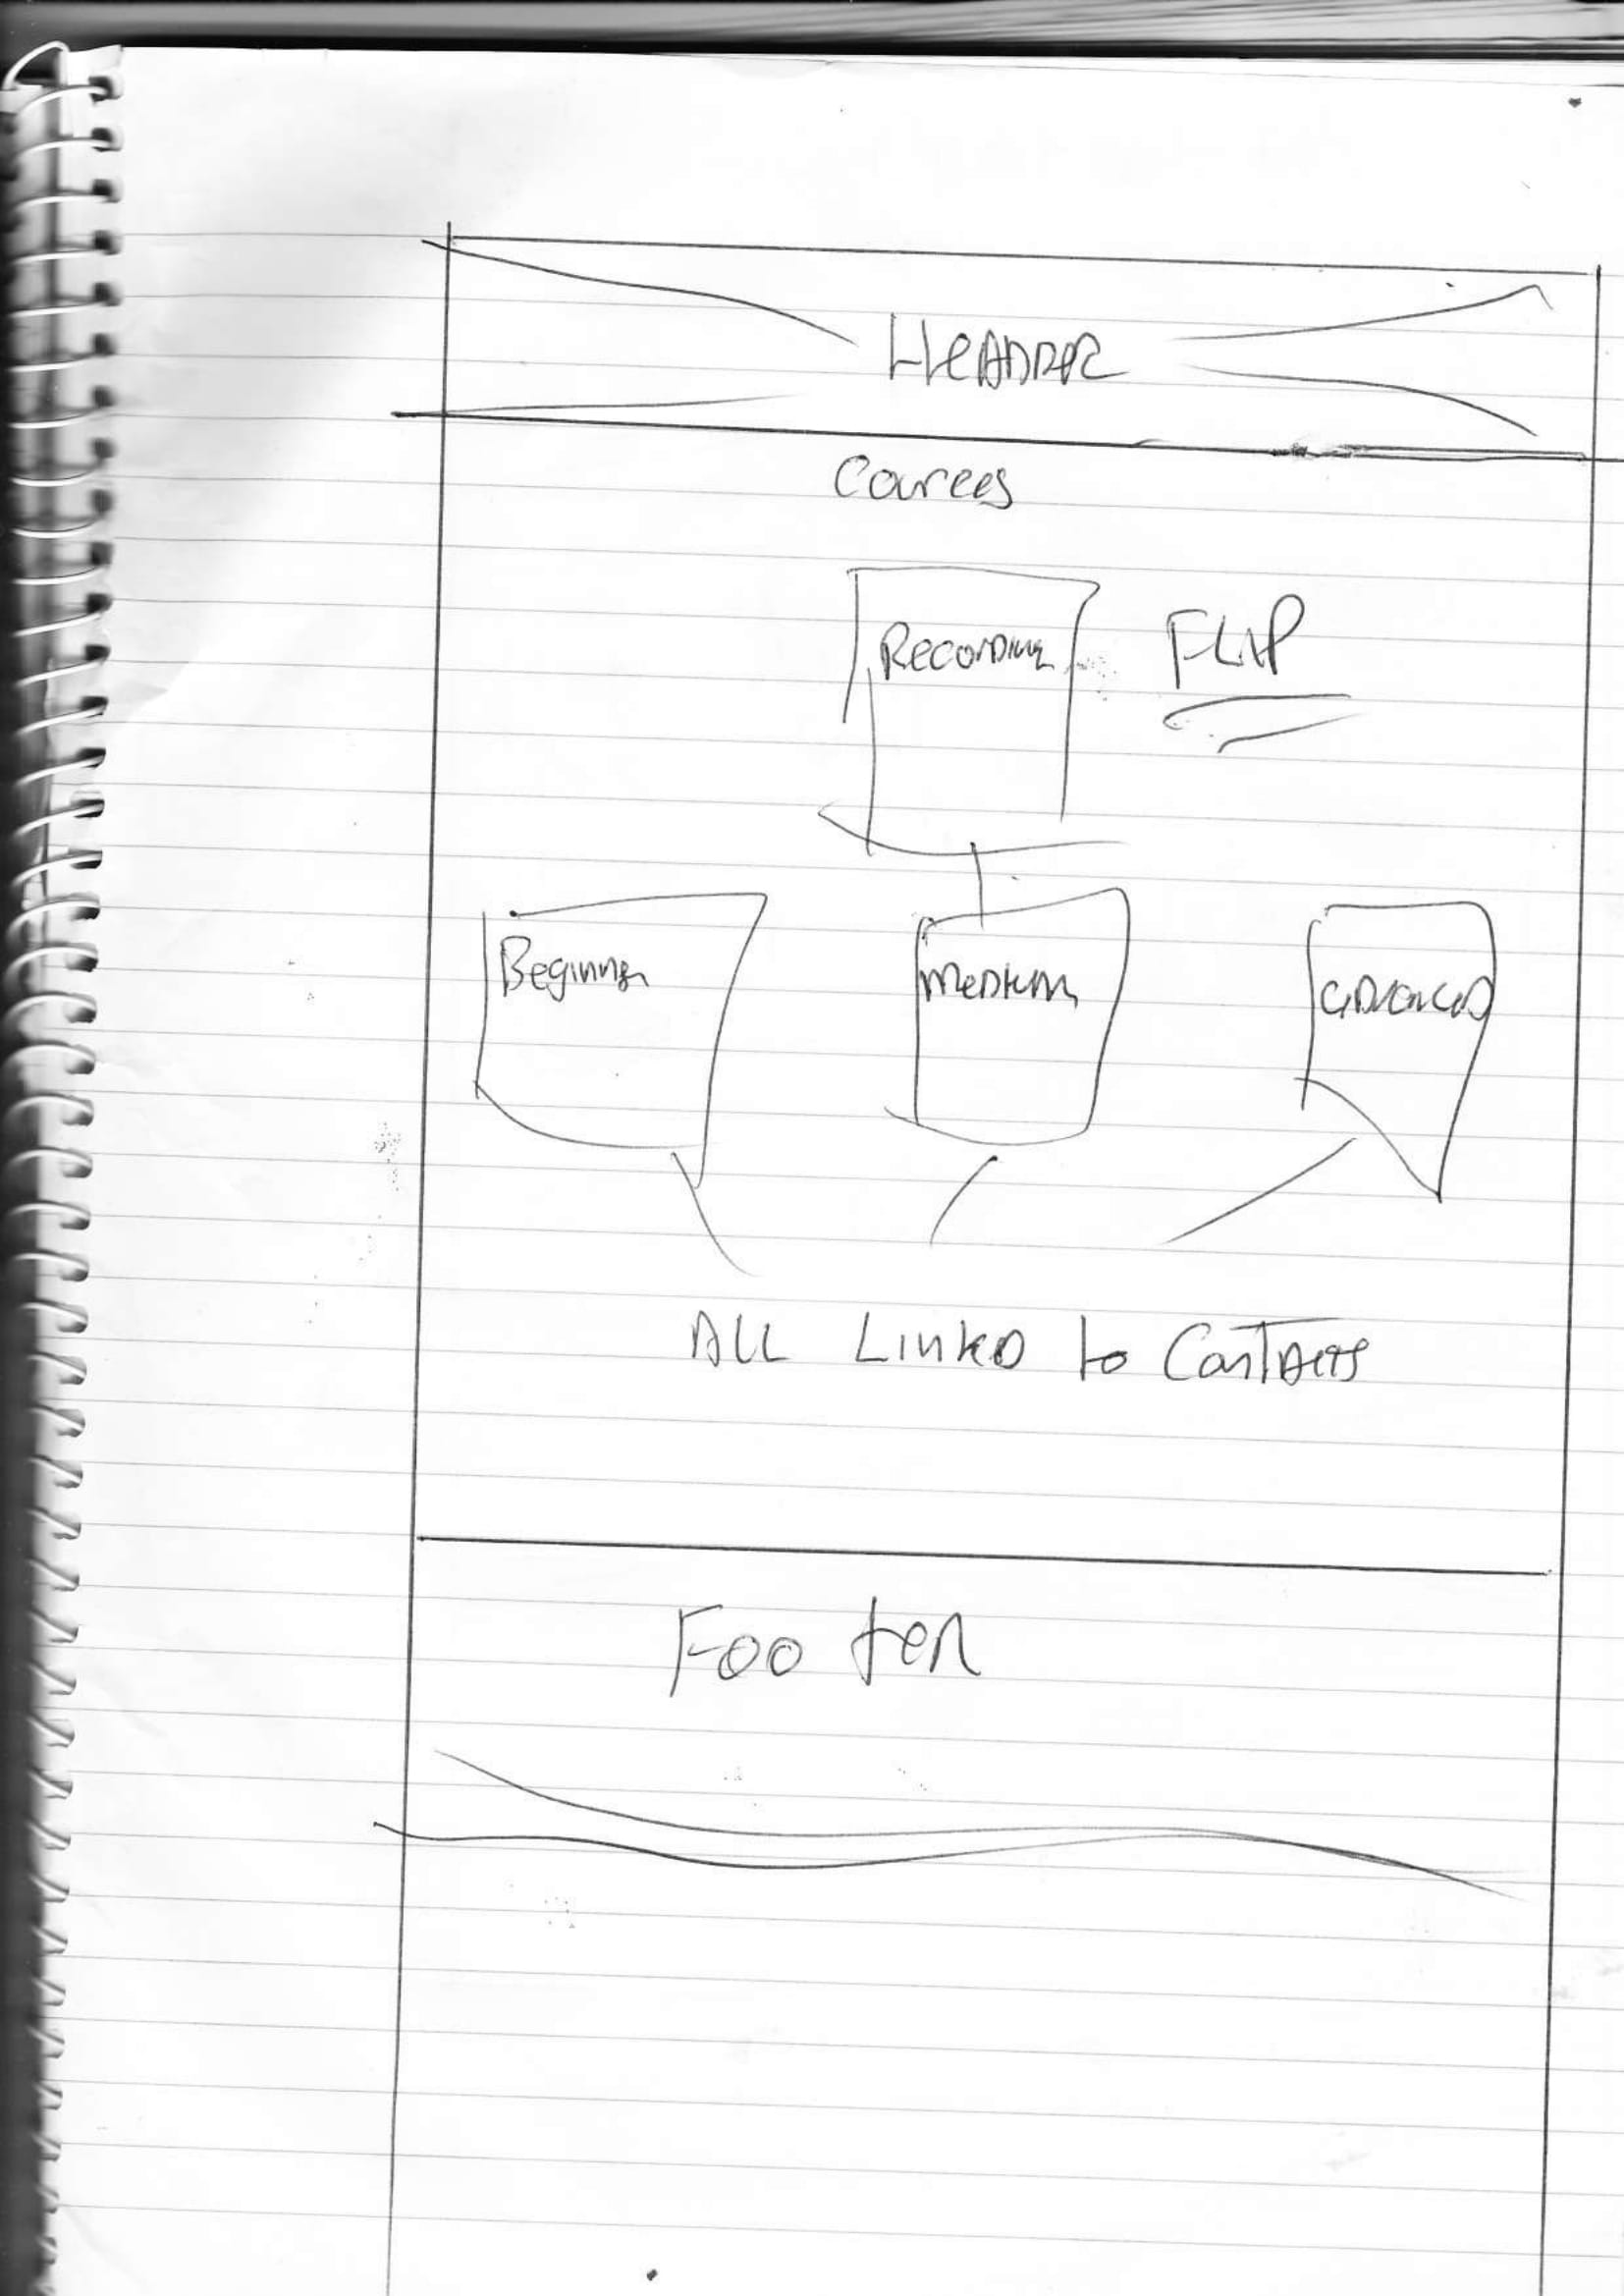 HEADER
Courses
Recording
FLIP
Beginner
Medium
advanced
ALL Linked to Contacts
Footer